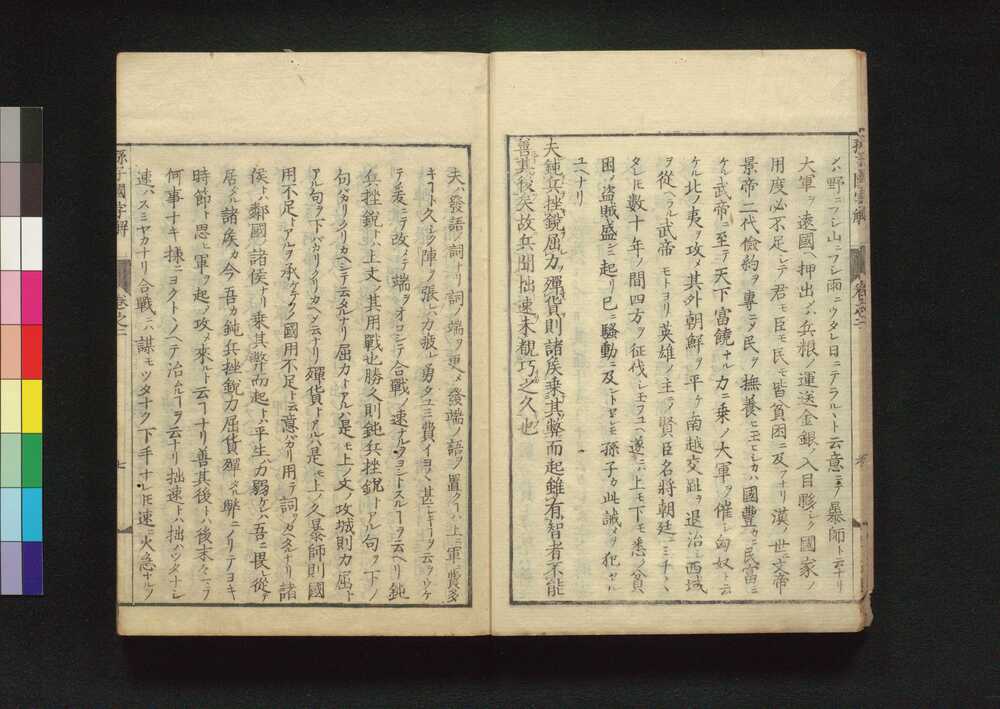 ノハ野ニフシ山ニフシ雨ニウタレ日ニテラルヽト云意ニテ暴師ト云ナリ
大軍ヲ遠國ヘ押出セハ兵粮ノ運送金銀ノ入目夥シク國家ノ
用度必不足シテ君モ臣モ民モ皆貧困ニ及フナリ漢ノ世ニ文帝
景帝二代儉約ヲ專ニシ民ヲ撫養ヒ玉ヒシカハ國豐カニ民富ミ
ケル武帝ニ至テ天下富饒ナル力ニ乘ノ大軍ヲ催シ匈奴ト云
ケル北ノ夷ヲ攻メ其外朝鮮ヲ平ケ南越交趾ヲ退治シ西域
ヲ從ヘラル武帝モトヨリ英雄ノ主ニテ賢臣名將朝廷ニミチヽ
タレ𪜈數十年ノ間四方ヲ征伐シ玉フユヘ遂ニハ上モ下モ悉ク貧
困シ盜賊盛ンニ起リ已ニ騷動ニ及ントセシモ孫子カ此誡ヲ犯セル
ユヘナリ
夫鈍兵挫銳屈力殫貨則諸矦乘其弊而起雖有智者不能
善其後矣故兵聞拙速未覩巧之久也
夫ハ發語ノ詞ナリ詞ノ端ヲ更メ發端ノ語ヲ置クハ上ニ軍ノ費多
キヿト久シク陣ヲ張レハ力疲レ勇タユミ費イヨ〱甚シキヿヲ云ヲウケ
テ爰ニテ改メテ端ヲオコシテ合戰ノ速ナルヲヨシトスルヿヲ云ヘリ鈍
兵挫銳トハ上文ノ其用戰也勝久則鈍兵挫銳トアル句ヲ下ノ
句バカリクリカヘシテ云タルナリ屈力トアルハ是モ上ノ文ノ攻城則力屈ト
アル句ヲ下バカリクリカヘシ云ナリ殫貨トアルハ是モ上ノ久暴師則國
用不足トアルヲ承ケテ國用不足ト云意バカリ用テ詞ヲカヘタルナリ諸
侯トハ鄰國ノ諸侯ナリ乘其弊而起トハ平生ハ力弱ケレハ吾ニ畏レ從テ
居タル諸矦カ今吾カ鈍兵挫銳力屈貨殫タル弊ニノリテヨキ
時節ト思ヒ軍ヲ起シ攻メ來ルト云ヿナリ善其後トハ後末々ニテ
何事ナキ樣ニヨクトヽノヘテ治ムルヿヲ云ナリ拙速トハ拙ハツタナシ
速ハスミヤカナリ合戰ニハ謀モツタナク下手ナレ𪜈速ニ火急ナルノ
孫子國字解
卷之二
七